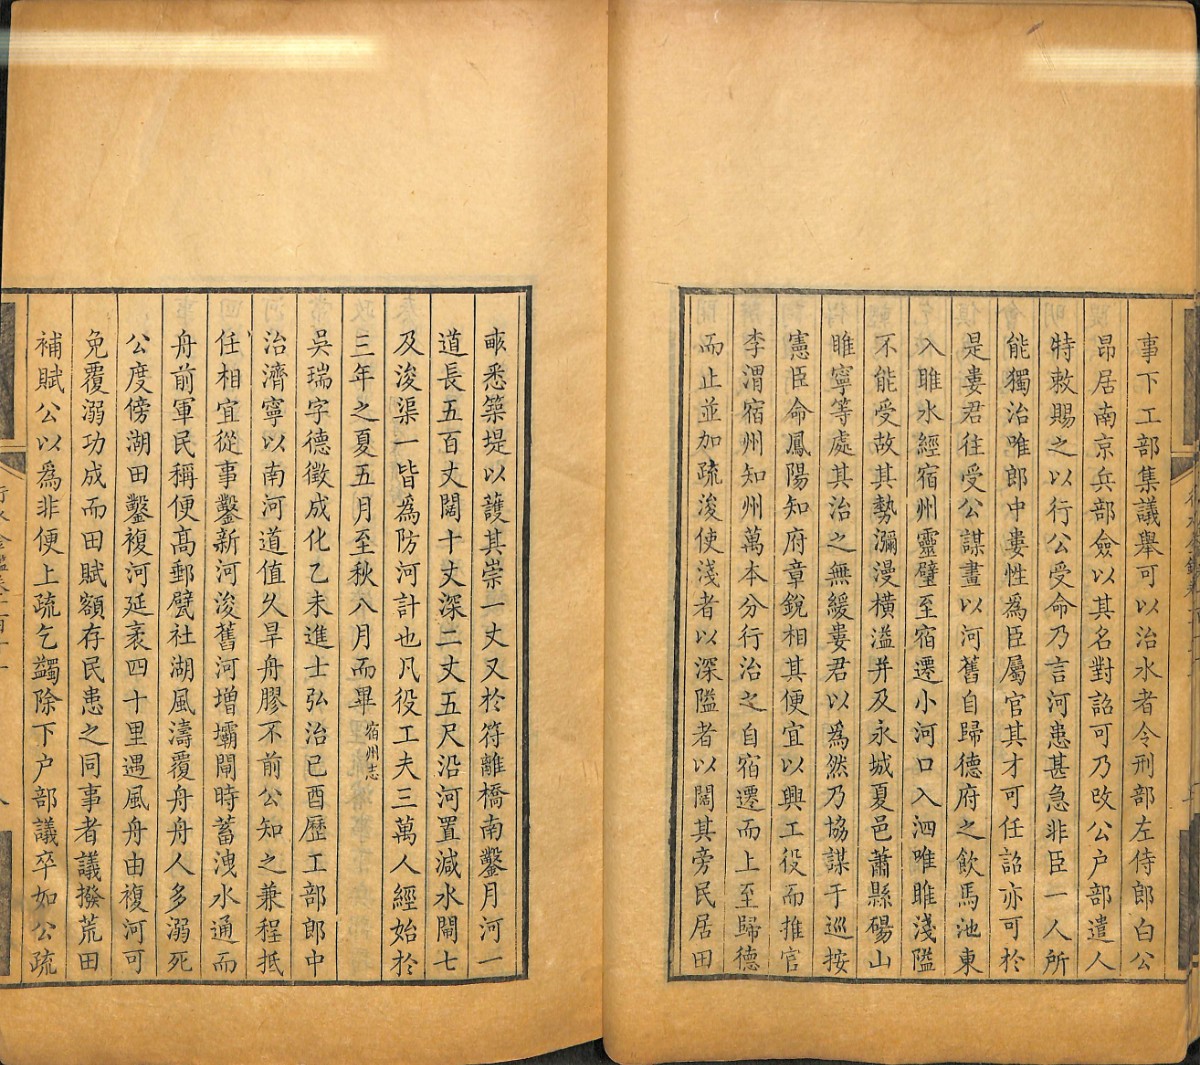 事下工部集議舉可以治水者令刑部左侍郎白公
昂居南京兵部僉以其名對詔可乃改公户部遣人
特敕賜之以行公受命乃言河患甚急非臣一人所
能獨治唯郎中婁性爲臣屬官其才可任詔亦可於
是婁君往受公謀畫以河舊自歸德府之飲馬池東
入睢水經宿州靈璧至宿遷小河口入泗唯睢淺隘
不能受故其勢瀰漫橫溢并及永城夏邑蕭縣碭山
睢寧等處其治之無緩婁君以爲然乃協謀于巡按
憲臣命鳳陽知府章銳相其便宜以興工役而推官
李渭宿州知州萬本分行治之自宿遷而上至歸德
而止並加疏浚使淺者以深隘者以闊其旁民居田
畝悉築堤以護其崇一丈又於符離橋南鑿月河一
道長五百丈闊十丈深二丈五尺沿河置減水閘七
及浚渠一皆爲防河計也凡役工夫三萬人經始於
三年之夏五月至秋八月而畢宿州志
吳瑞字德徵成化乙未進士弘治己酉歷工部郎中
治濟寧以南河道值久旱舟膠不前公知之兼程抵
任相宜從事鑿新河浚舊河增壩閘時蓄洩水通而
舟前軍民稱便髙郵甓社湖風濤覆舟舟人多溺死
公度傍湖田鑿複河延袤四十里遇風舟由複河可
免覆溺功成而田賦額存民患之同事者議撥荒田
補賦公以爲非便上疏乞蠲除下户部議卒如公疏
行水金鑑卷一百十一